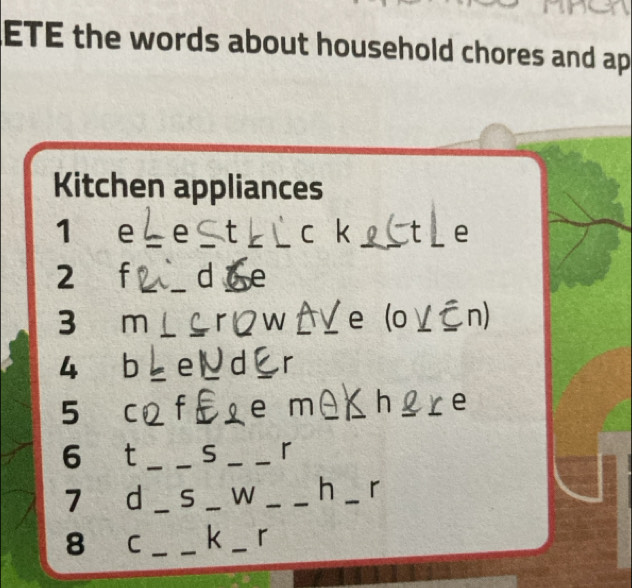 ETE the words about household chores and ap
Kitchen appliances
1 eLectric kettLe
2 fri_dGe
3 mIcrOwAVe (oVEn)
4 bLeNdEr
5 cofEee mAKhere
6 t _ _ s _ _ r
7 d _ s _ w _ _ h _ r
8 c _ _ k _ r